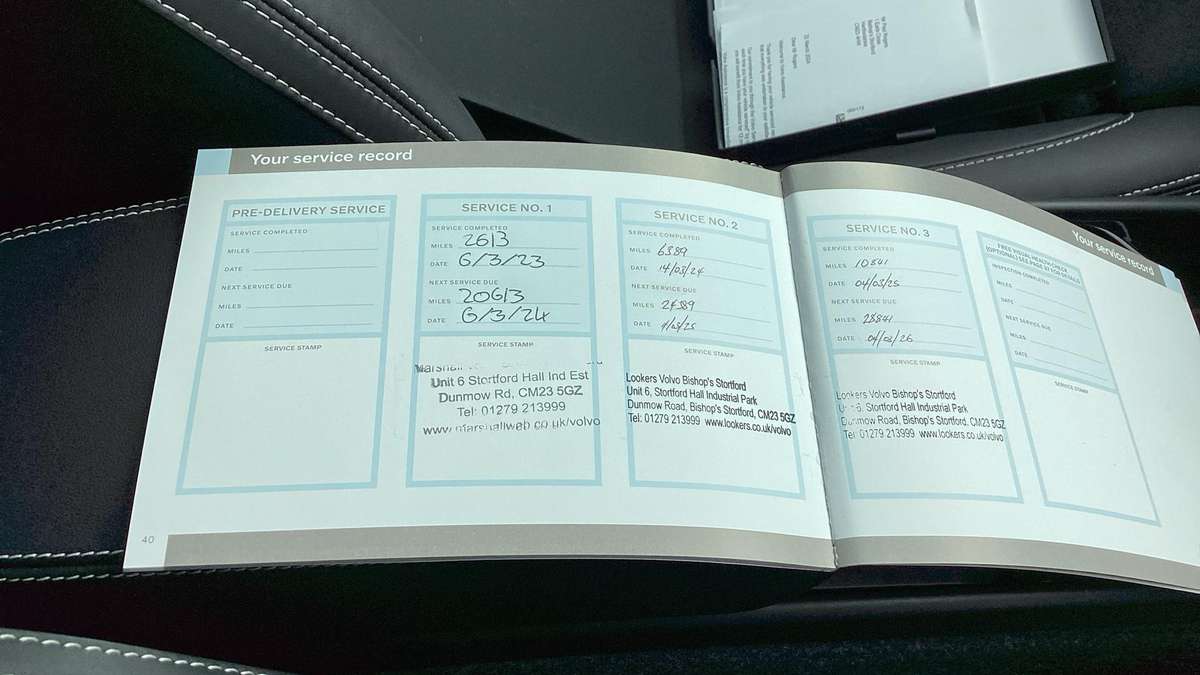 Mr Paul Rogers
Bishop's Stortford
Hertfordshire
22 March 2024
Dear Mr Rogers
Welcome to Volvo Assistance.
Your service record
PRE-DELIVERY SERVICE
SERVICE COMPLETED
MILES
DATE
NEXT SERVICE DUE
MILES
DATE
SERVICE STAMP
SERVICE NO. 1
SERVICE COMPLETED
MILES 2613
DATE 6/3/23
NEXT SERVICE DUE
MILES 20613
DATE 6/3/24
SERVICE STAMP
Marshall
Unit 6 Stortford Hall Ind Est
Dunmow Rd, CM23 5GZ
Tel: 01279 213999
www.marshallweb.co.uk/volvo
SERVICE NO. 2
SERVICE COMPLETED
MILES 6389
DATE 14/03/24
NEXT SERVICE DUE
MILES 24389
DATE
SERVICE STAMP
Lookers Volvo Bishop's Stortford
Unit 6, Stortford Hall Industrial Park
Dunmow Road, Bishop's Stortford, CM23 5GZ
Tel: 01279 213999 www.lookers.co.uk/volvo
40
SERVICE NO. 3
SERVICE COMPLETED
MILES 10841
DATE 04/03/25
NEXT SERVICE DUE
MILES 28841
DATE 04/03/26
SERVICE STAMP
Lookers Volvo Bishop's Stortford
Unit 6, Stortford Hall Industrial Park
Dunmow Road, Bishop's Stortford, CM23 5GZ
Tel: 01279 213999 www.lookers.co.uk/volvo
Your service record
FREE VISUAL HEALTH-CHECK
(OPTIONAL) SEE PAGE 37 FOR DETAILS
INSPECTION COMPLETED
MILES
DATE
NEXT SERVICE DUE
MILES
DATE
SERVICE STAMP